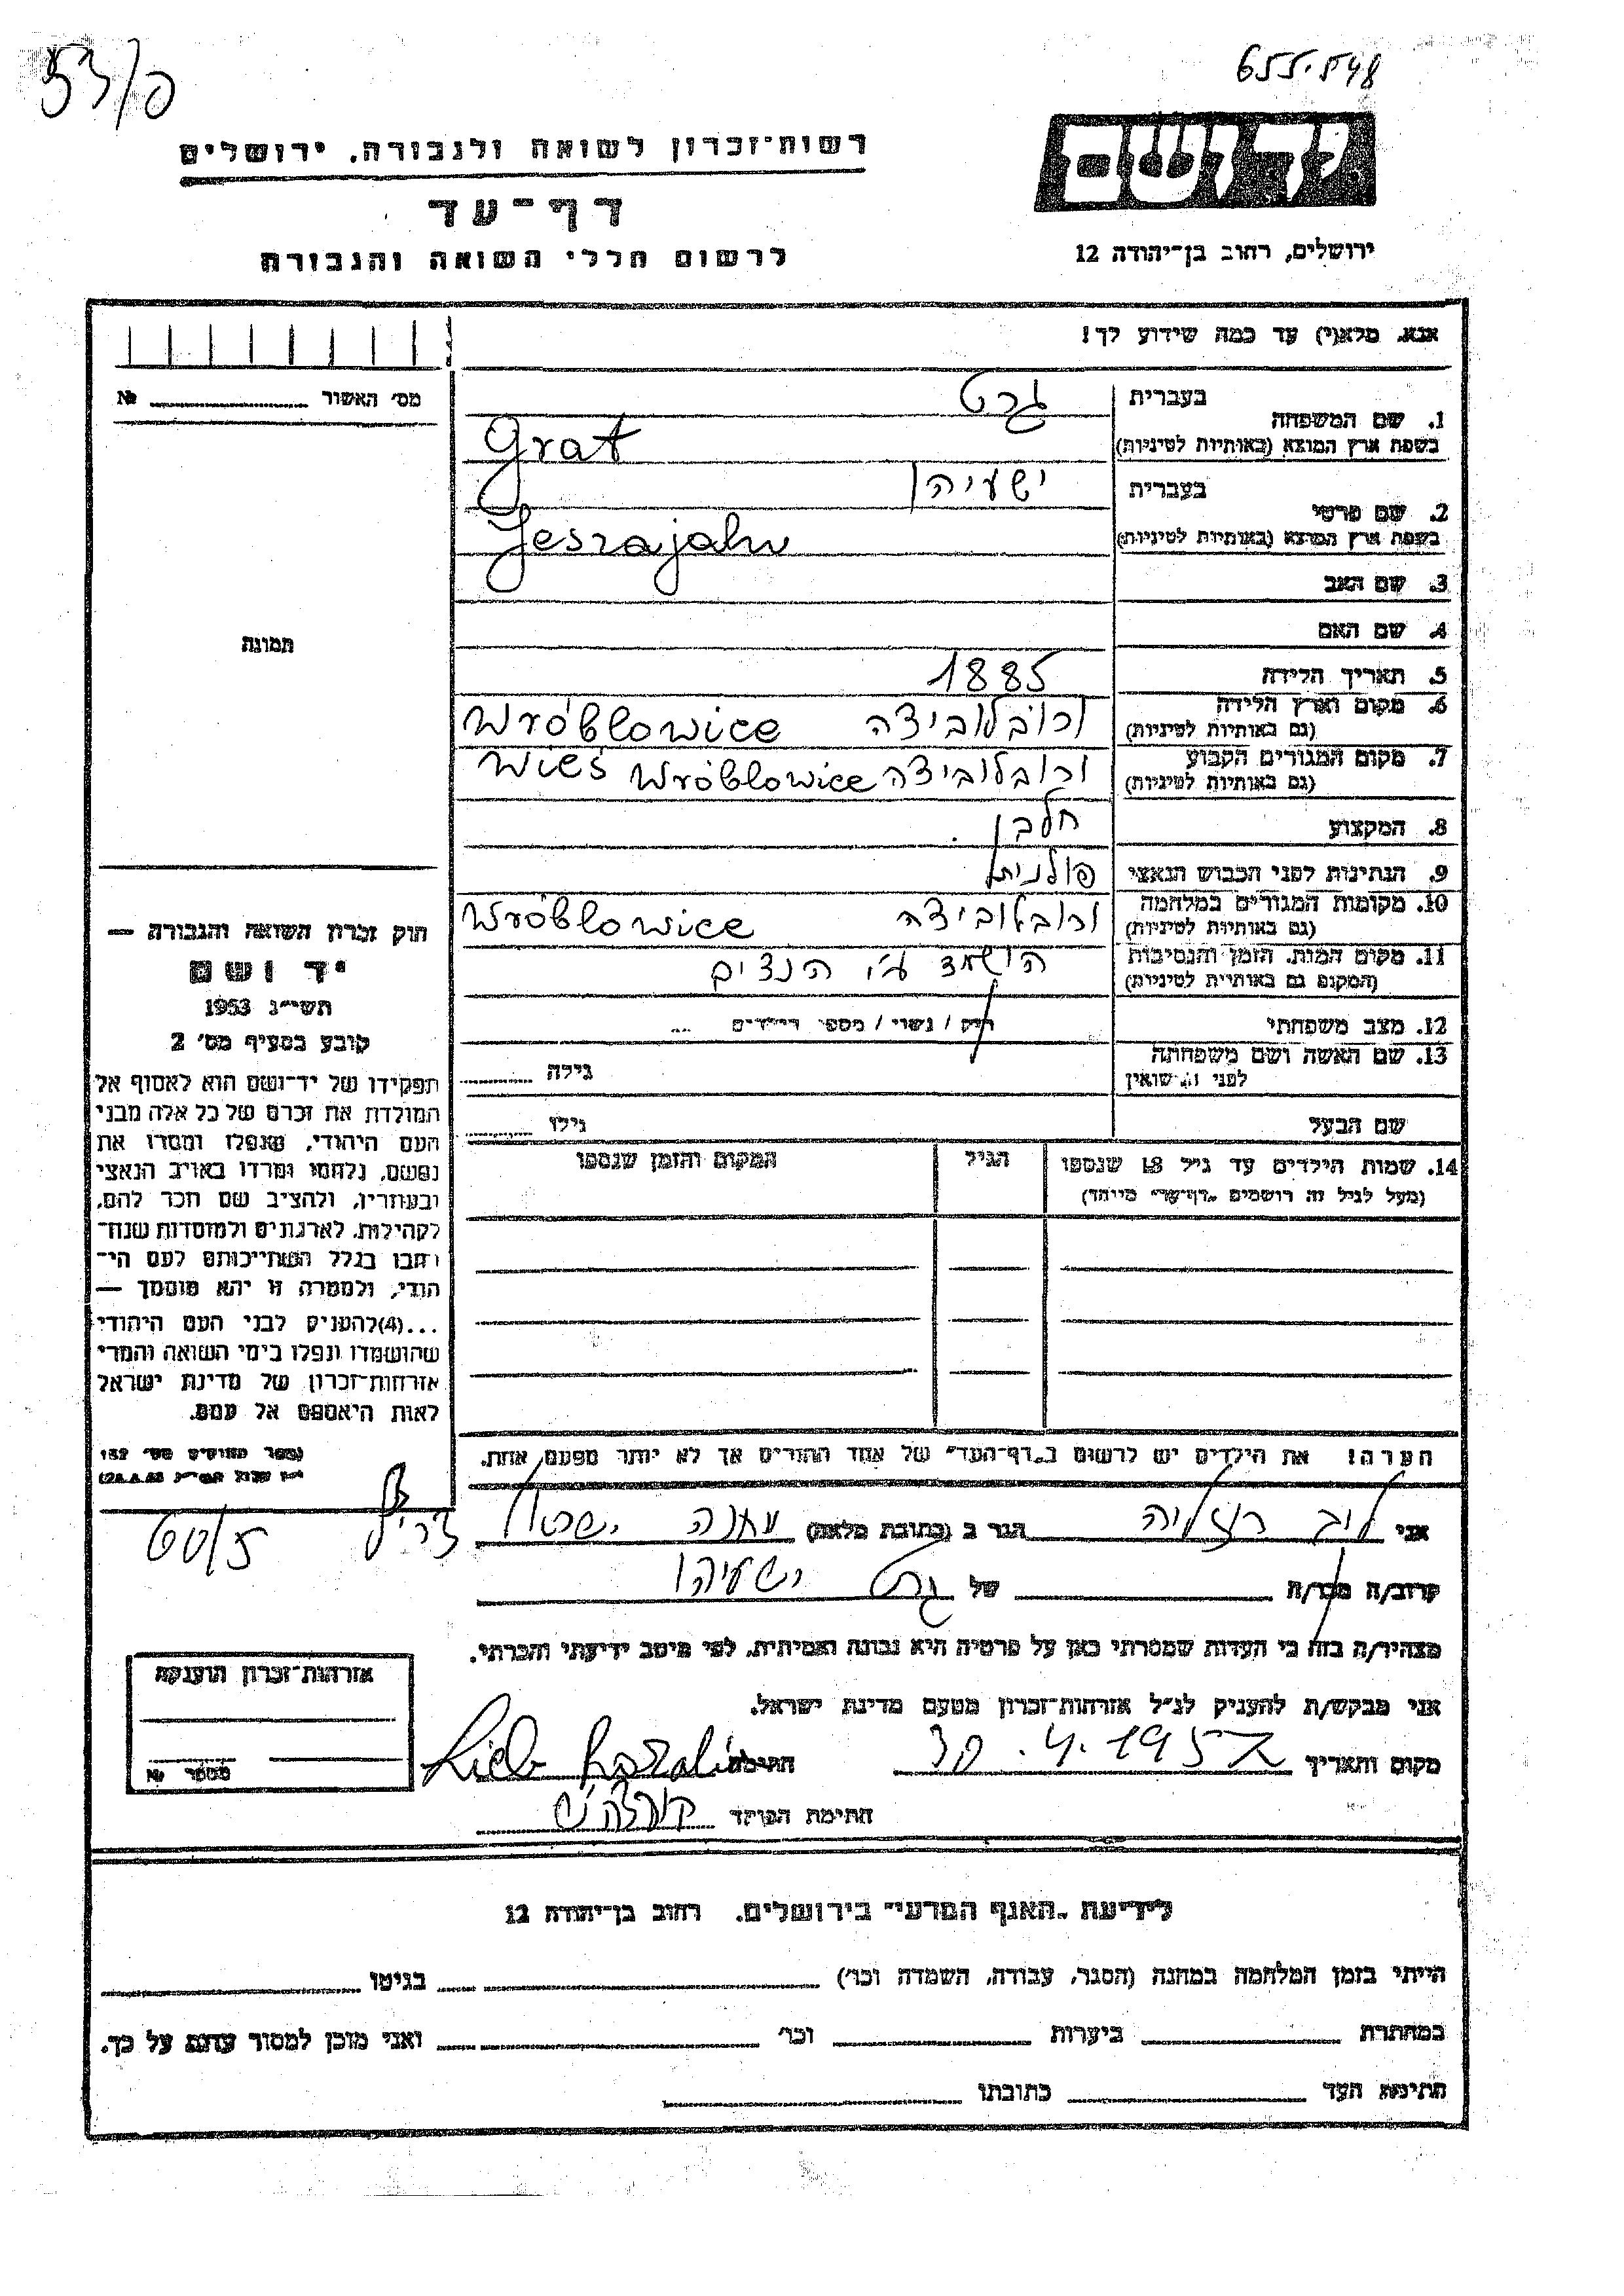 655.548
53/פ
יד ושם
רשות־זכרון לשואה ולגבורה, ירושלים
דף־עד
לרשום חללי השואה והגבורה
ירושלים, רחוב בן־יהודה 12
אנא, מלא(י) עד כמה שידוע לך!
מס׳ האשור № 
1. שם המשפחה
בעברית גרט
בשפת ארץ המוצא (באותיות לטיניות) Grat
2. שם פרטי
בעברית ישעיהו
בשפת ארץ המוצא (באותיות לטיניות) Jeszajahu
3. שם האב
4. שם האם
תמונה
5. תאריך הלידה 1885
6. מקום וארץ הלידה ורובלוביצה Wróblowice
(גם באותיות לטיניות)
7. מקום המגורים הקבוע ורובלוביצה Wieś Wróblowice
(גם באותיות לטיניות)
8. המקצוע חלבן
9. הנתינות לפני הכבוש הנאצי פולנית
10. מקומות המגורים במלחמה ורובלוביצה Wróblowice
(גם באותיות לטיניות)
11. מקום המות, הזמן והנסיבות הושמד ע״י הנצים
(המקום גם באותיות לטיניות)
12. מצב משפחתי רוק / נשוי / מספר הילדים
13. שם האשה ושם משפחתה
לפני הנשואין גילה
שם הבעל גילו
14. שמות הילדים עד גיל 18 שנספו הגיל המקום והזמן שנספו
(מעל לגיל זה רושמים „דף־עד״ מיוחד)
חוק זכרון השואה והגבורה —
יד ושם
תשי״ג 1953
קובע בסעיף מס׳ 2
תפקידו של יד־ושם הוא לאסוף אל
המולדת את זכרם של כל אלה מבני
העם היהודי, שנפלו ומסרו את
נפשם, נלחמו ומרדו באויב הנאצי
ובעוזריו, ולהציב שם וזכר להם,
לקהילות, לארגונים ולמוסדות שנח־
רבו בגלל השתייכותם לעם הי־
הודי, ולמטרה זו יהא מוסמך —
...(4) להעניק לבני העם היהודי
שהושמדו ונפלו בימי השואה והמרי
אזרחות־זכרון של מדינת ישראל
לאות היאספם אל עמם.
הערה! את הילדים יש לרשום ב„דף־העד״ של אחד ההורים אך לא יותר מפעם אחת.
אני ליב רוזליה הגר ב (כתובת מלאה)
60/5
קרוב/ה מכר/ה של גרט ישעיהו
מצהיר/ה בזה כי העדות שמסרתי כאן על פרטיה היא נכונה ואמיתית, לפי מיטב ידיעתי והכרתי.
אני מבקש/ת להעניק לנ״ל אזרחות־זכרון מטעם מדינת ישראל.
מקום ותאריך 30.4.1957 חתימה Lieb Rozalia
חתימת הפוקד
אזרחות־זכרון הוענקה
מספר №
לידיעת „האגף המדעי״ בירושלים, רחוב בן־יהודה 12
הייתי בזמן המלחמה במחנה (הסגר, עבודה, השמדה וכו׳) בגיטו
במחתרת ביערות וכו׳ ואני מוכן למסור עדות על כך.
חתימת העד כתובתו